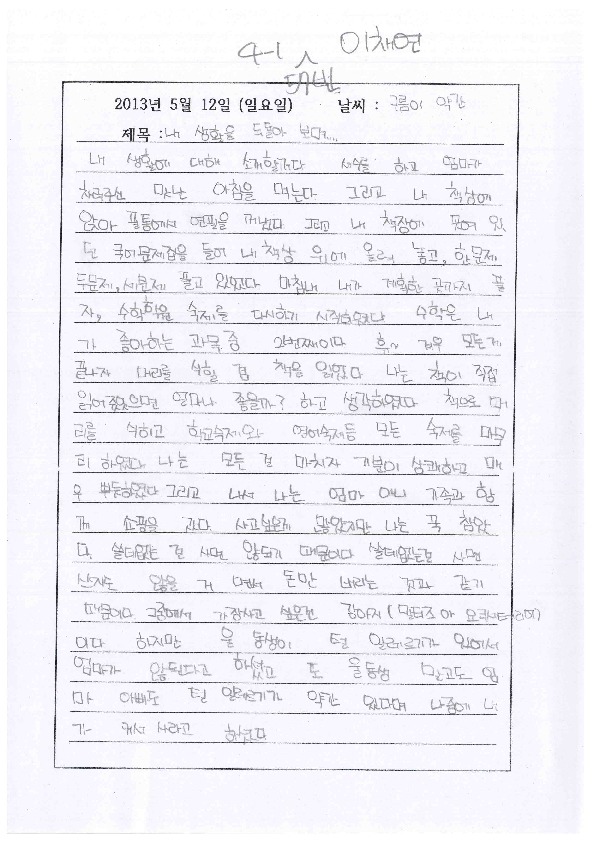 4-1 이채연
5번
2013년 5월 12일 (일요일) 날씨 : 구름이 약간
제목 : 내 생활을 뒤돌아 보다....
내 생활에 대해 소개할거다 세수를 하고 엄마가
차려주신 맛난 아침을 먹는다 그리고 내 책상에
앉아 필통에서 연필을 꺼냈다 그리고 내 책장에 꽂여 있
던 국어문제집을 들어 내 책상 위에 올려 놓고, 한문제
두문제, 세문제 풀고 있었다 마침내 내가 계획한 곳까지 풀
자, 수학학원 숙제를 다시하기 시작하였다 수학은 내
가 좋아하는 과목 중 이다 휴~ 겨우 모든게
끝나자 머리를 식힐 겸 책을 읽었다 나는 책이 직접
읽어 줬으면 얼마나 좋을까? 하고 생각하였다 책으로 머
리를 식히고 학교숙제와 영어숙제등 모든 숙제를 마무
리 하였다 나는 모든 걸 마치자 기분이 상쾌하고 매
우 뿌듯하였다 그리고 나서 나는 엄마 아니 가족과 함
께 쇼핑을 갔다 사고싶은게 많았지만 나는 꾹 참았
다. 쓸데없는 걸 사면 않되기 때문이다 쓸데없는걸 사면
쓰지도 않을 거 면서 돈만 버리는 것과 같기
때문이다 그중에서 가장사고 싶은건 강아지 (말티즈 아 요크셔테리어)
이다 하지만 울 동생이 털 알레르기가 있어서
엄마가 않된다고 하셨고 또 울동생 말고도 엄
마 아빠도 털 알레르기가 약간 있다며 나중에 내
가 커서 사라고 하셨다